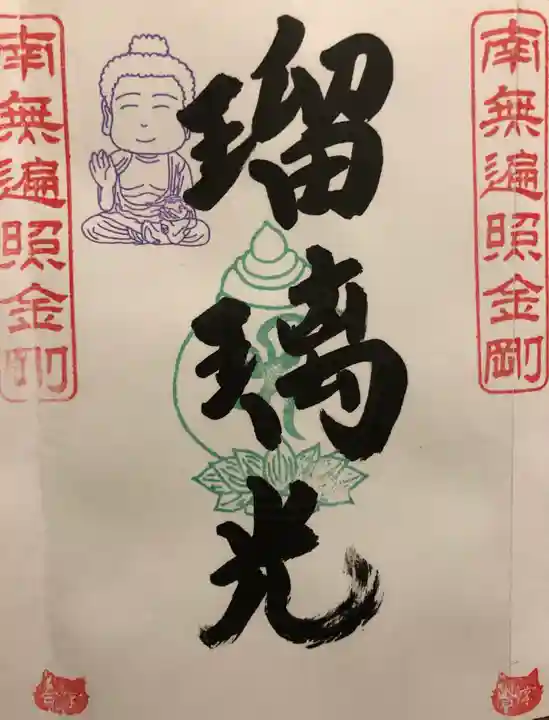 南無遍照金剛
瑠璃光
南無遍照金剛